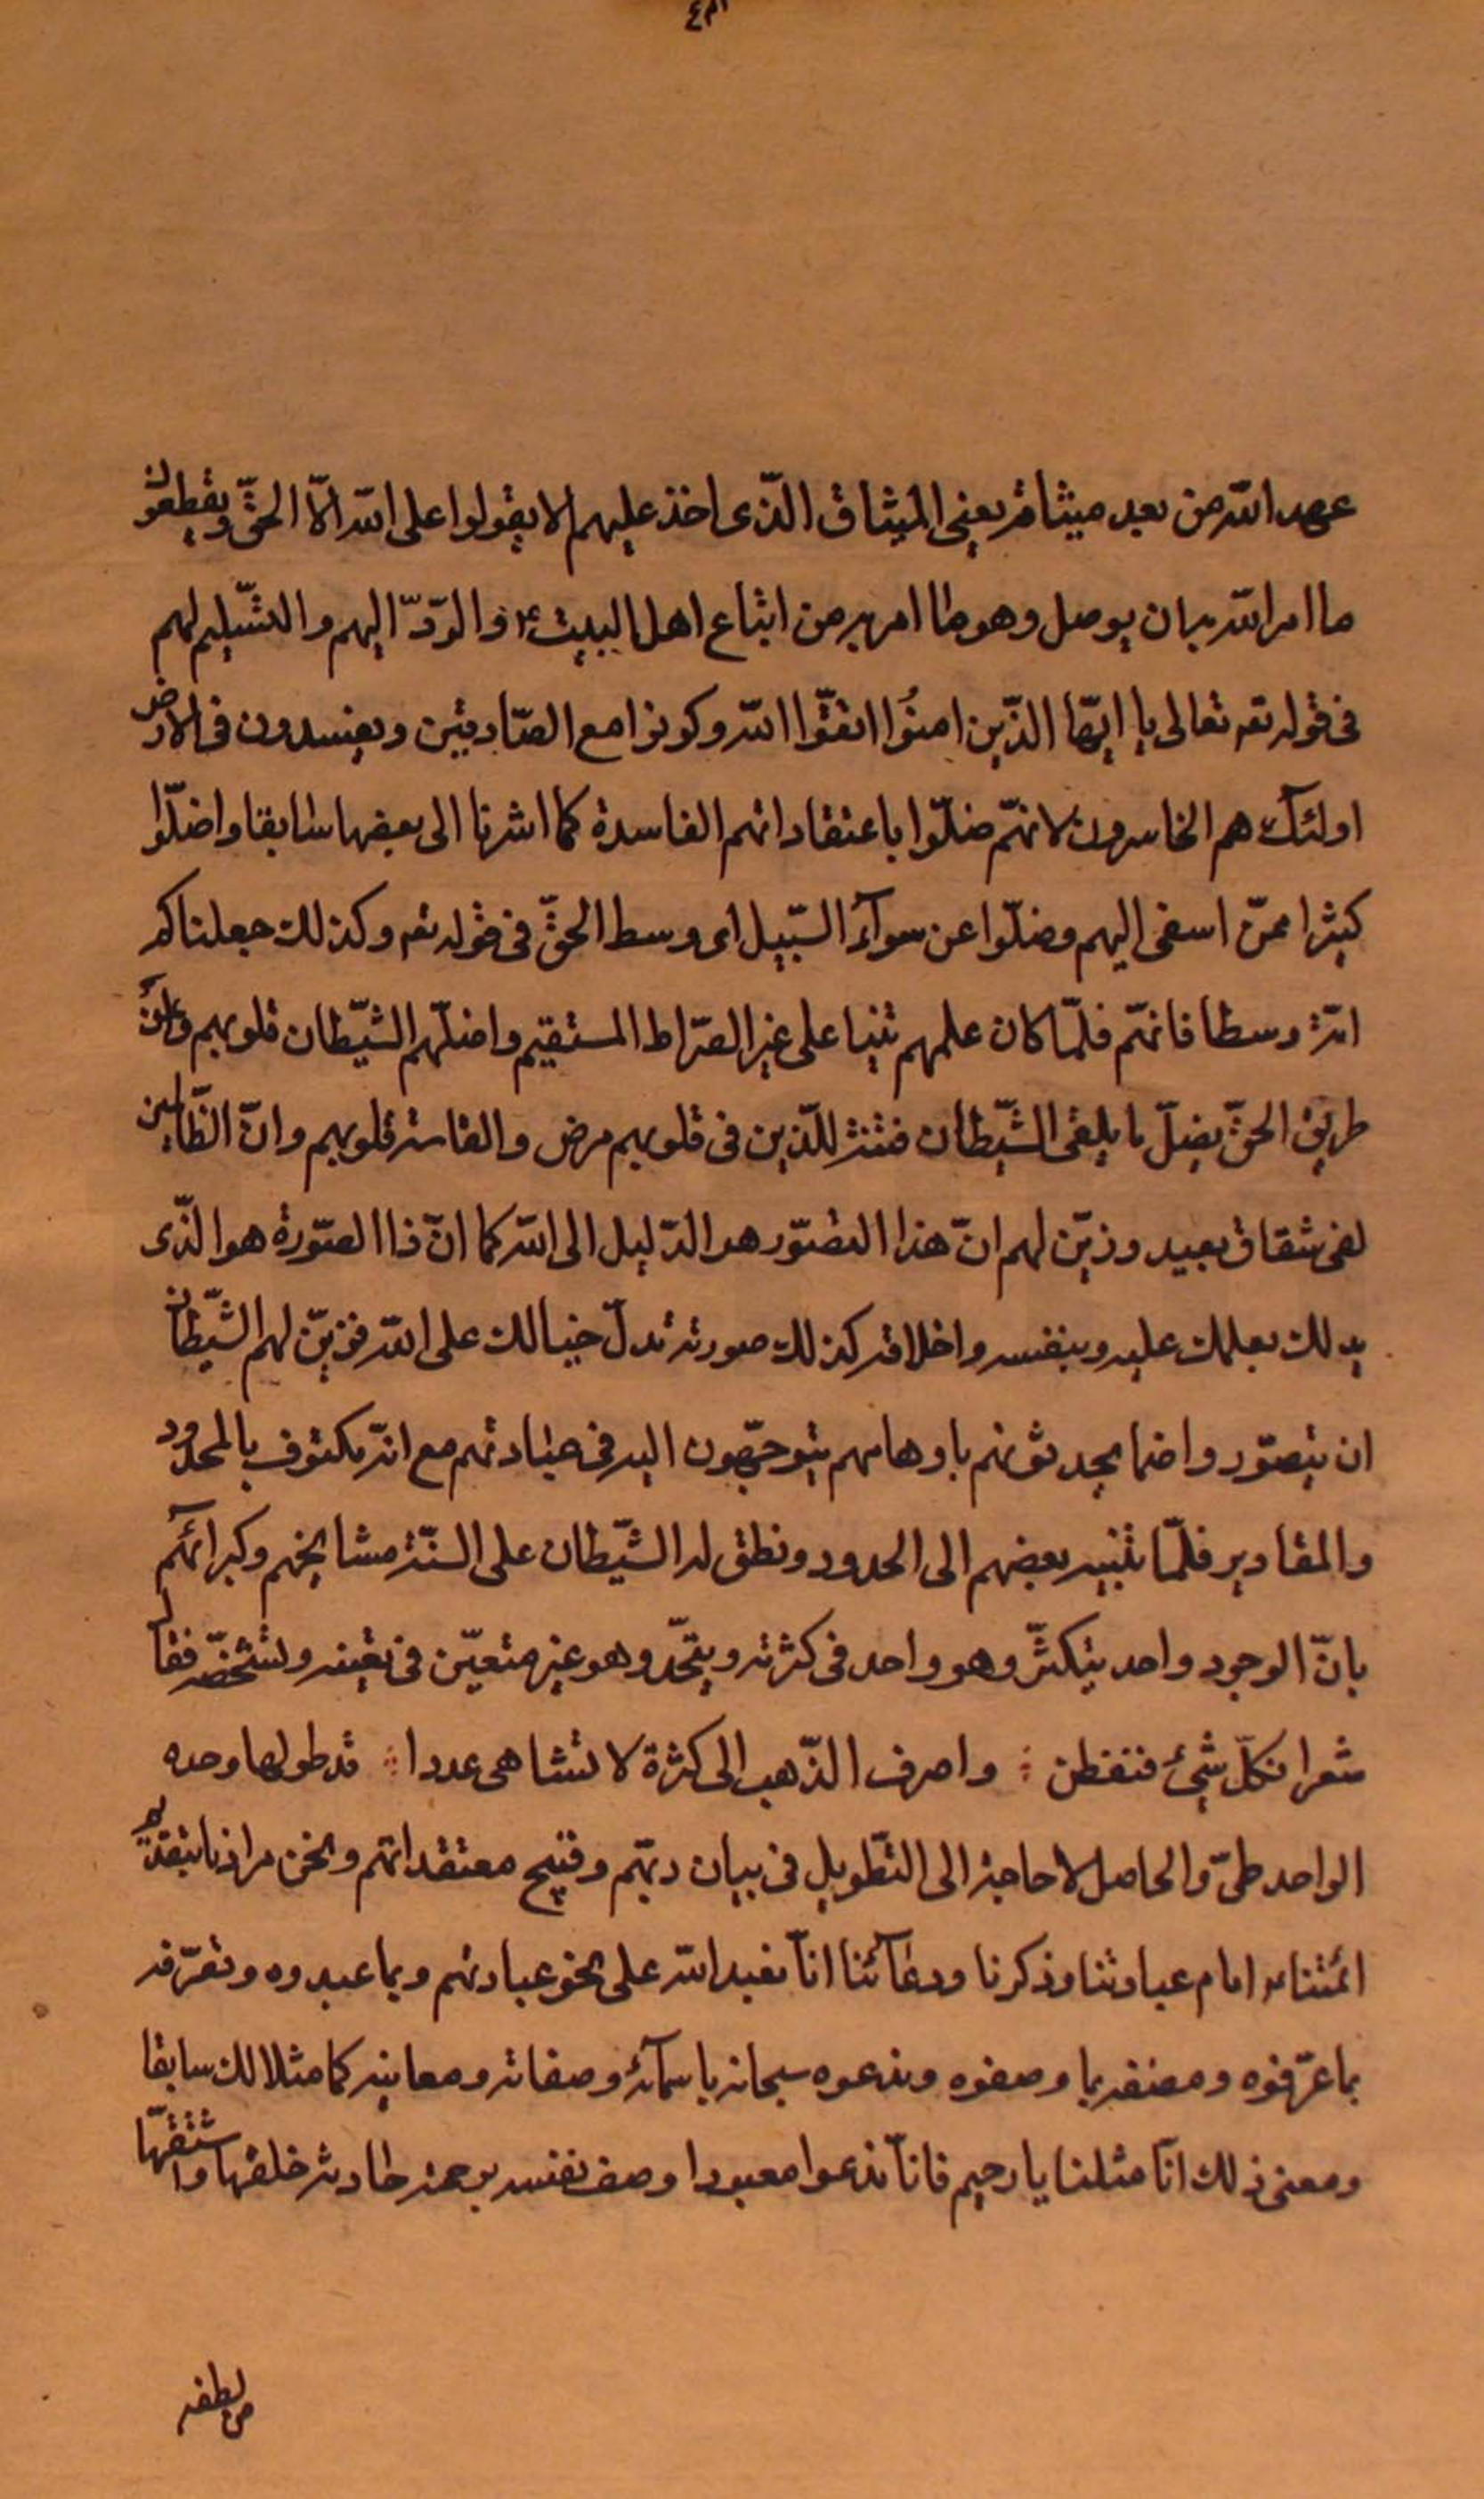 عهد الله من بعد ميثاقه يعنى الميثاق الذّى اخذ عليهم الا يقولوا على الله الاّ الحقّ ويقطعون
ما امر الله به ان يوصل وهو ما امر به من اتباع اهل البيت ع والردّ اليهم والتسليم لهم
فى قوله تع تعالى يا ايّها الذّين امنُوا اتقّوا الله وكونوا مع الصّادقين ويفسدون فى الارض
اولئك هم الخاسرون لانّهم ضلّوا باعتقاداتهم الفاسدة كما اشرنا الى بعضها سابقا واضلّوا
كثيرا ممّن اليهم وضلّوا عن سوآء السّبيل اى وسط الحقّ فى قوله تع وكذلك جعلناكم
امّة وسطا فانهّم فلمّا كان علمهم على غير الصّراط المستقيم واضلّهم الشيّطان قلوبهم
طريق الحقّ ما يلقى الشّيطان فتنة للذّين فى قلوبهم مرض والقاسية قلوبهم وانّ الظّالمين
لفى شقاق بعيد وزيّن لهم انّ هذا التصّور هو الدّليل الى الله كما انّ ذا الصّورة هو الذّى
يدلك بعلمك عليه وبنفسه واخلاقه كذلك صورته تدلّ خيالك على الله فزيّن لهم الشّيطان
ان يتصّور يحدثونهم باوهامهم يتوجهّون اليه فى عباداتهم مع انّه مكنوف بالحدود
والمقادير فلمّا تنبيه بعضهم الى الحدود ونطق له الشّيطان على السنّة مشايخهم وكبرائهم
بانّ الوجود واحد يتكثّر وهو واحد فى كثرته ويتحّد وهو غير متعيّن فى تعينه وتشخصّه فقال
شعرا فكلّ شئ فتفطن ؛ واصرف الذّهب الى كثرة لا تتناهى عددا ؛ قد طولها وحده
الواحد طىّ والحاصل لا حاجة الى التطّويل فى بيان ديهّم وقبيح معتقداتهم ونحن مرادنا
ائمتنا ع امام عبادتنا وذكرنا ودعآئنا انّا نعبد الله على نحو عبادتهم وبما عبدوه ونعرّفه
بما عرّفوه ونصفه بما وصفوه وندعوه سبحانه باسمآئه وصفاته ومعانيه كما مثلا لك سابقا
ومعنى ذلك انّا مثلنا يا رحيم فانّا ندعوا معبودا وصف نفسه برحمة حادثة خلقها واشتقهّا
من لطفه